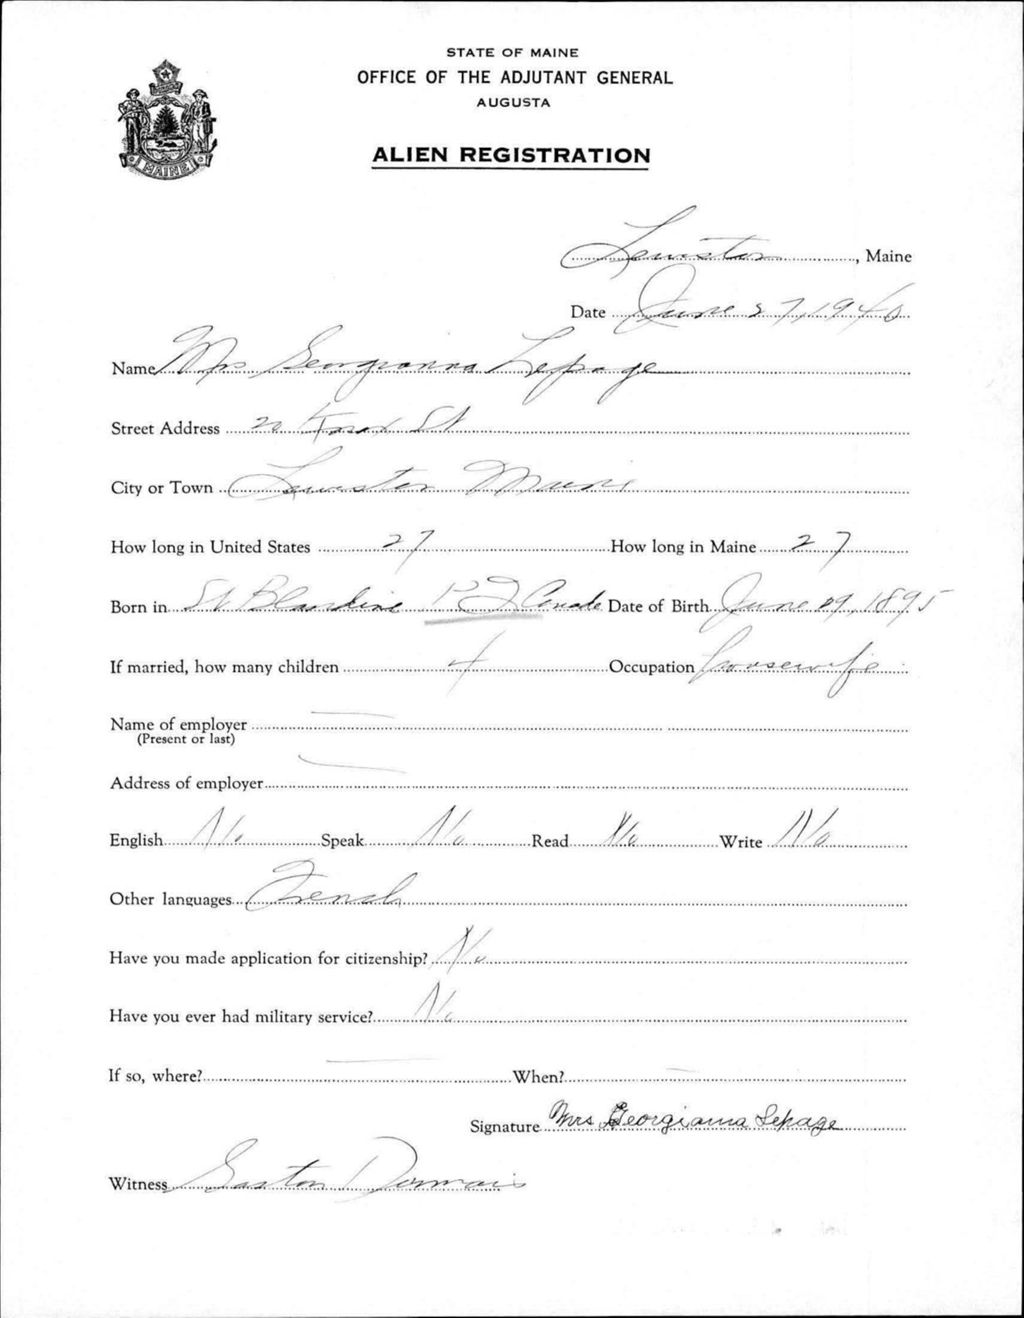 STATE OF MAINE
OFFICE OF THE ADJUTANT GENERAL
AUGUSTA
MAINE
ALIEN REGISTRATION
Lewiston, Maine
Date June 27, 1940
Name Mrs Georgianna Lepage
Street Address 20 Knox St
City or Town Lewiston Maine
How long in United States 27 How long in Maine 27
Born in St Blandine P.Q Canada Date of Birth June 29, 1895
If married, how many children 4 Occupation housewife
Name of employer
(Present or last)
Address of employer
English No Speak No Read No Write No
Other languages French
Have you made application for citizenship? No
Have you ever had military service? No
If so, where? When?
Signature Mrs Georgianna Lepage
Witness Gaston Dumais